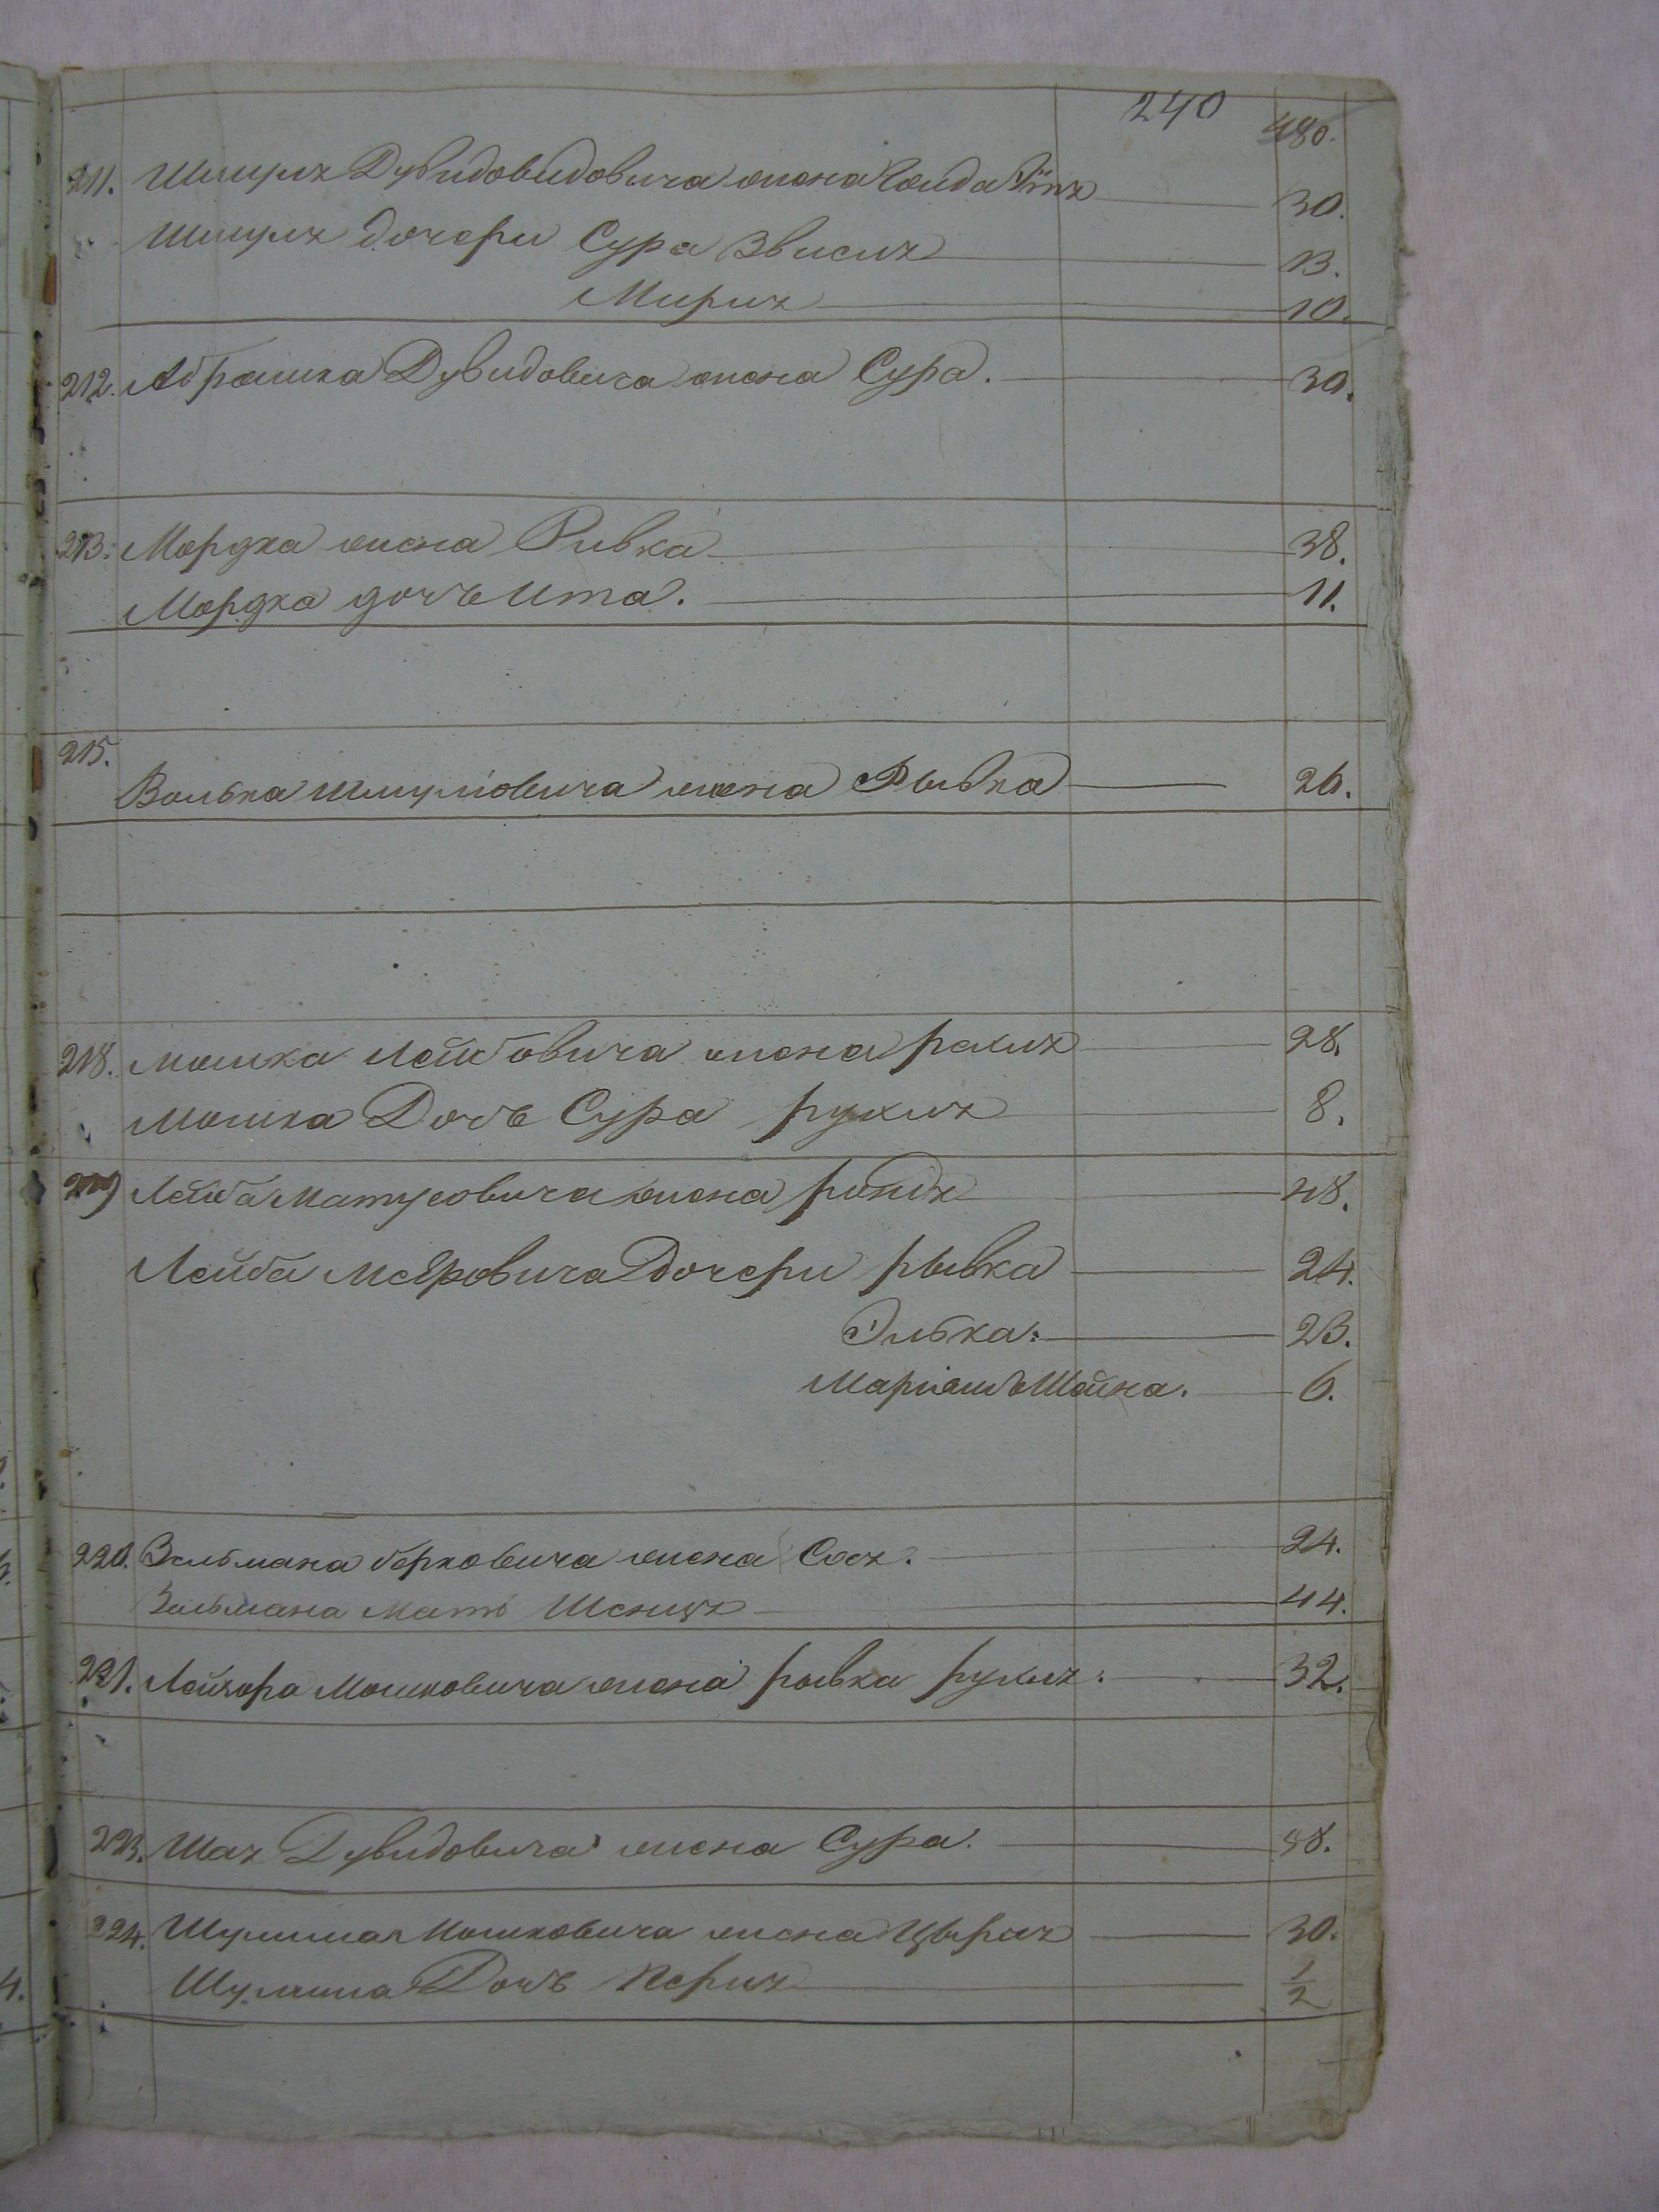 240
480.
211. Шмуля Дувидовидовича жена 30.
Шмуля дочери Сура Звися 13.
Миря 10.
212. Абрамка Дувидовича жена Сура. 30.
213. Мордха жена Ривка 38.
Мордха дочь Ита. 11.
215.
Волька Шмуйловича жена Рывка 26.
218. Мошка Лейбовича жена рахля 28.
Мошка Дочь Сура рухля 8.
219 Лейба Матусовича жена 48.
Лейба Меяровича Дочери рывка 24.
Элька. 23.
Маріашь Шайна. 6.
220. Зельмана берковича жена Сося. 24.
Зельмана Мать 44.
221. Лейзора Мошковича жена рывка рухля. 32.
223. Шая Дувидовича жена Сура. 48.
224. Шулима Мошковича жена Цырля 30.
Шулима Дочь Перля 1/2